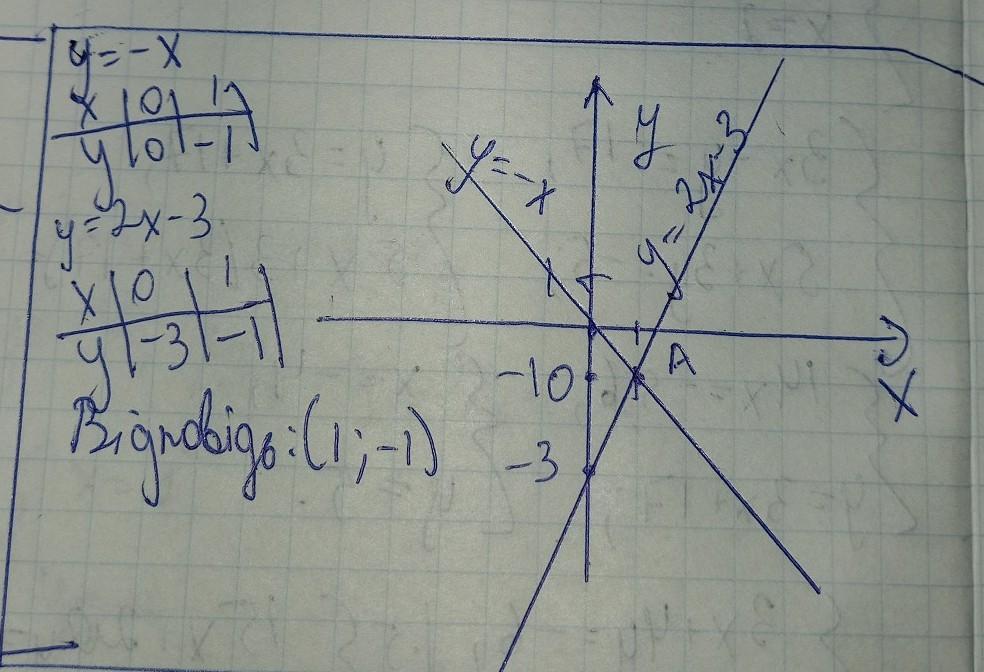 y = -x
x | 0 | 1
y | 0 | -1
y = 2x - 3
x | 0 | 1
y | -3 | -1
Відповідь: (1; -1)
y
y = -x
y = 2x - 3
1
A
-1 0
-3
x